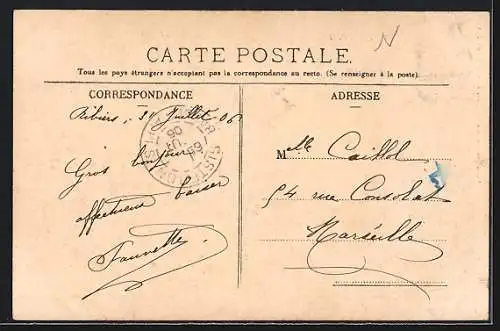 N
CARTE POSTALE.
Tous les pays étrangers n'acceptent pas la correspondance au recto. (Se renseigner à la poste).
CORRESPONDANCE
ADRESSE
Ribiers, Juillet 06
Gros bonjour
affectueux baiser
Fauvette
Mlle Caillol
54 rue Consolat
Marseille